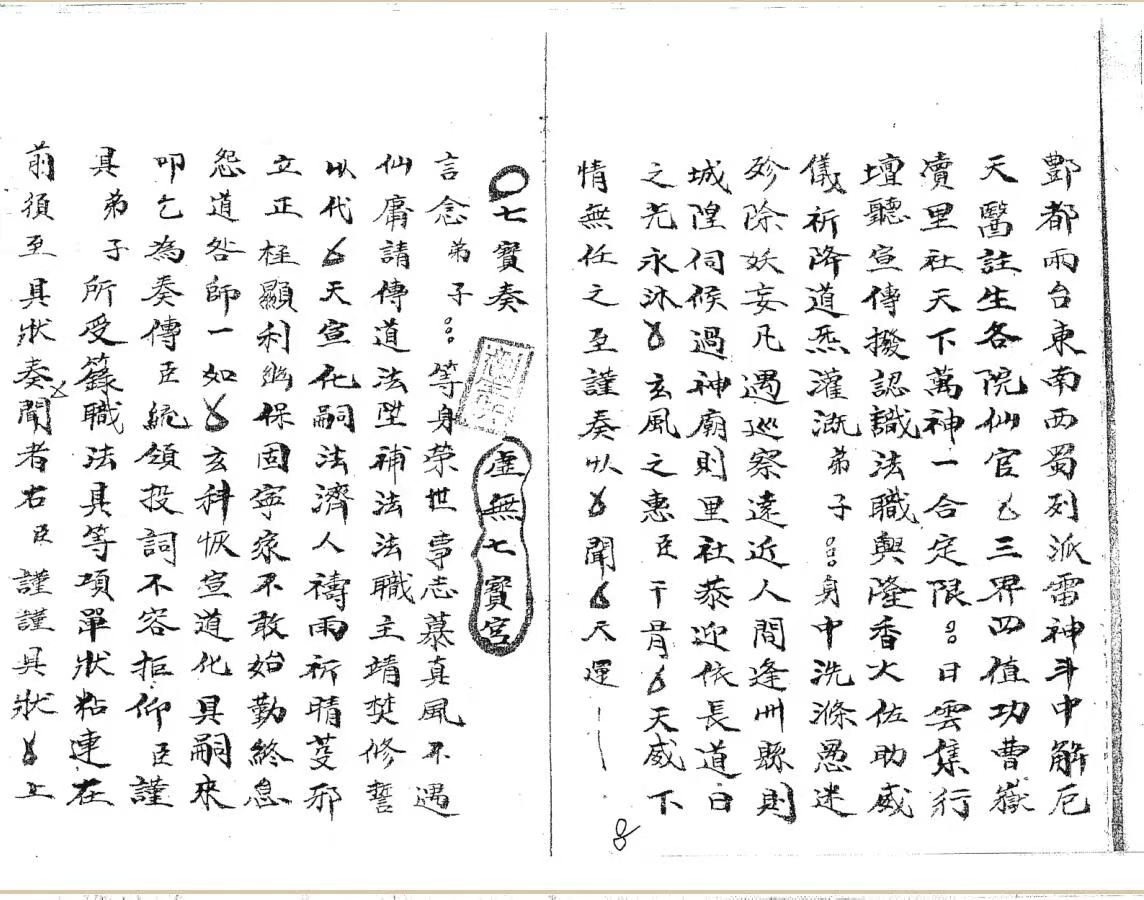 酆都兩台東南西蜀列派雷神斗中解厄
天醫註生各院仙官三界四值功曹嶽
瀆里社天下萬神一合定限日雲集行
壇聽宣傳撥認識法職興隆香火佐助威
儀祈降道炁灌溉弟子身中洗滌愚迷
殄除妖妄凡遇巡察遠近人間逢州縣則
城隍伺候過神廟則里社恭迎依長道日
之光永沐玄風之惠臣干冐天威下
情無任之至謹奏以聞天運
七寶奏
虛無七寶宮
言念弟子等身荣世事志慕真風不遇
仙庸請傳道法陞補法職主靖焚修誓
以代天宣化嗣法濟人禱雨祈晴芟邪
立正極顯利幽保固寧家不敢始勤終怠
怨道咎師一如玄科恢宣道化具嗣來
叩乞為奏傳臣統領投詞不容拒仰臣謹
具弟子所受籙職法具等項單狀粘連在
前須至具狀奏聞者右臣謹謹具狀上
8